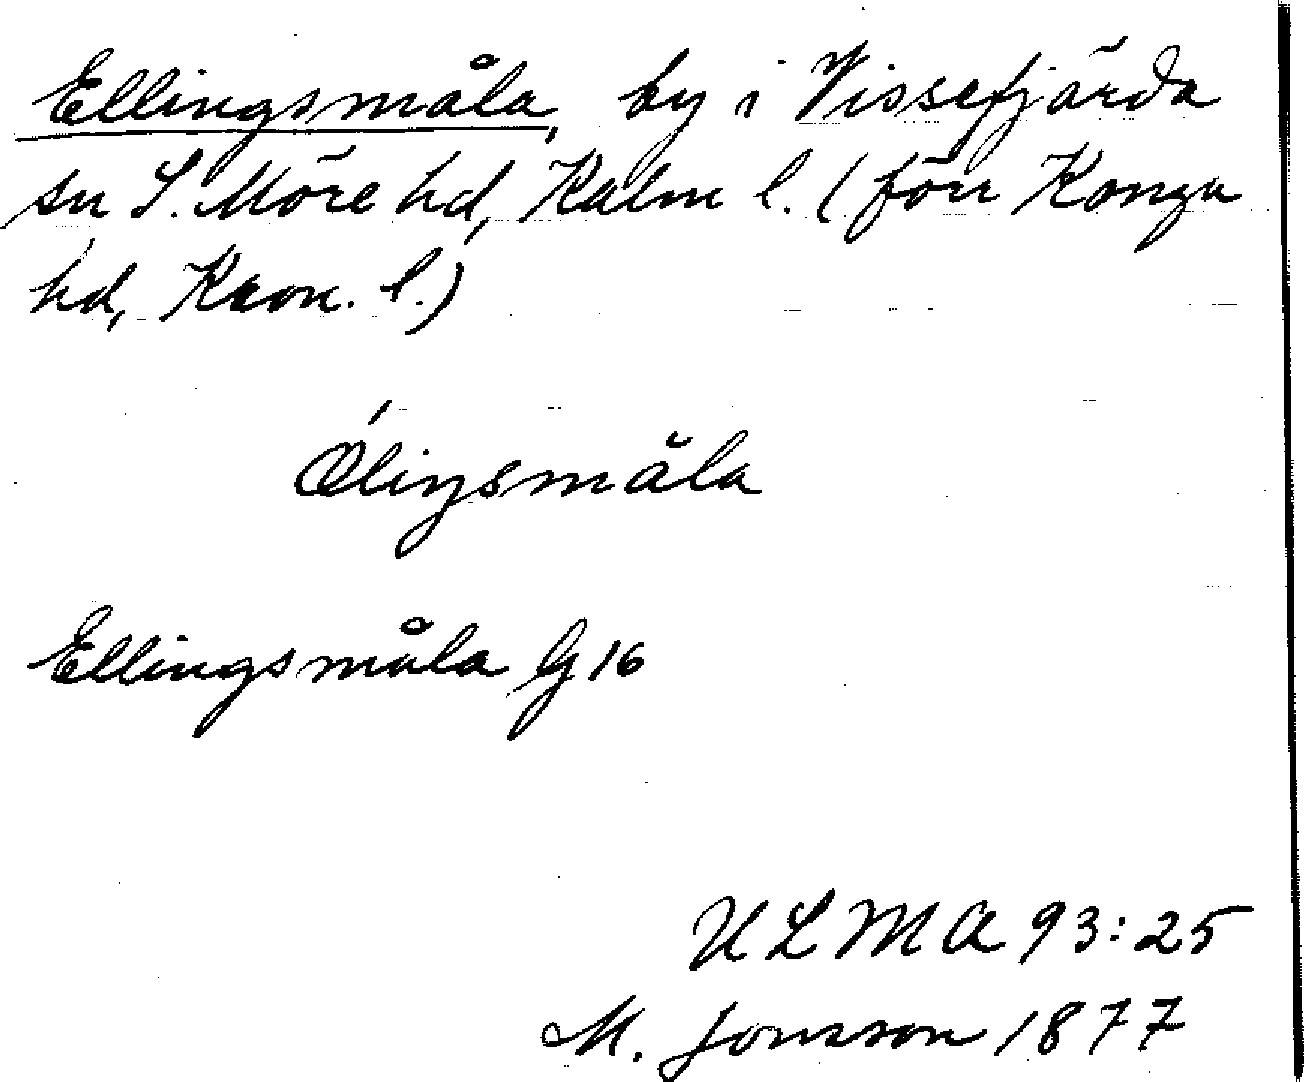 Ellingsmåla, by i Vissefjärda
sn S. Möre hd, Kalm l. (förr Konga
hd, Kron. l.)
Ǿliŋsmåla
Ellingsmåla G 16
ULMA 93:25
M. Jonsson 1877